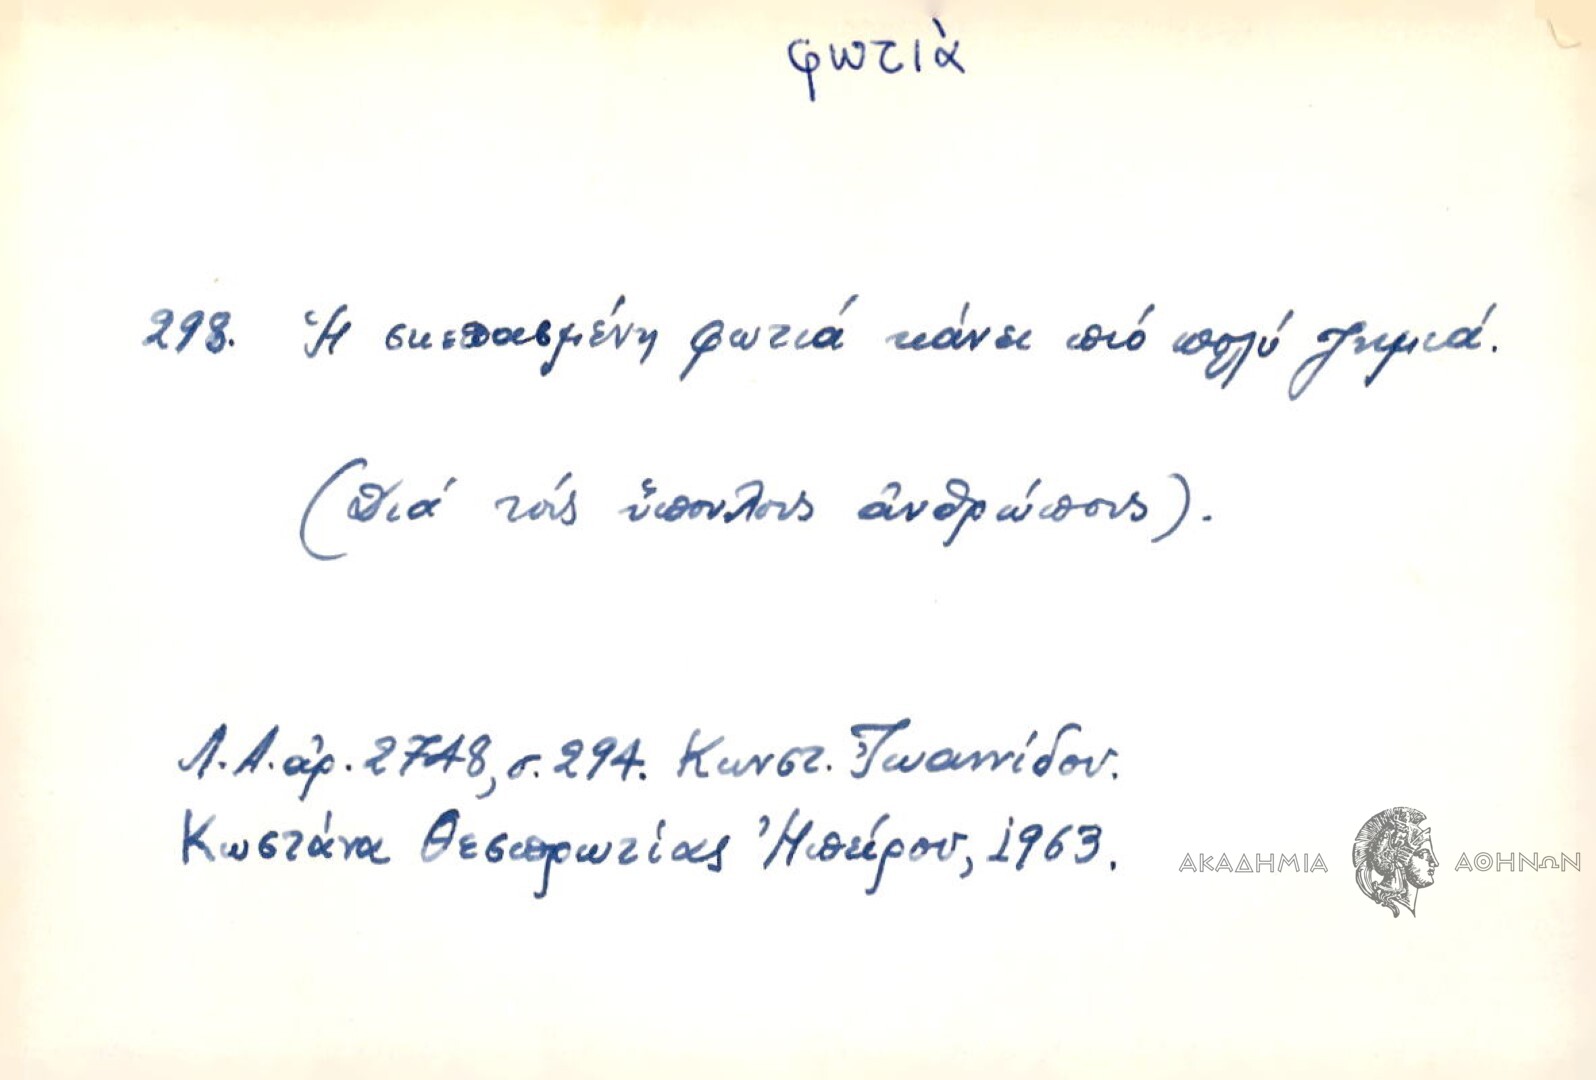 φωτιὰ
298. Ἡ σκεπασμένη φωτιά κάνει πιό πολύ ζημιά.
(Διά τούς ὕπουλους ἀνθρώπους).
Λ.Α. ἀρ. 2748, σ. 294. Κωνστ. Ἰωαννίδου.
Κωστάνα Θεσπρωτίας Ἠπείρου, 1963.
ΑΚΑΔΗΜΙΑ ΑΘΗΝΩΝ